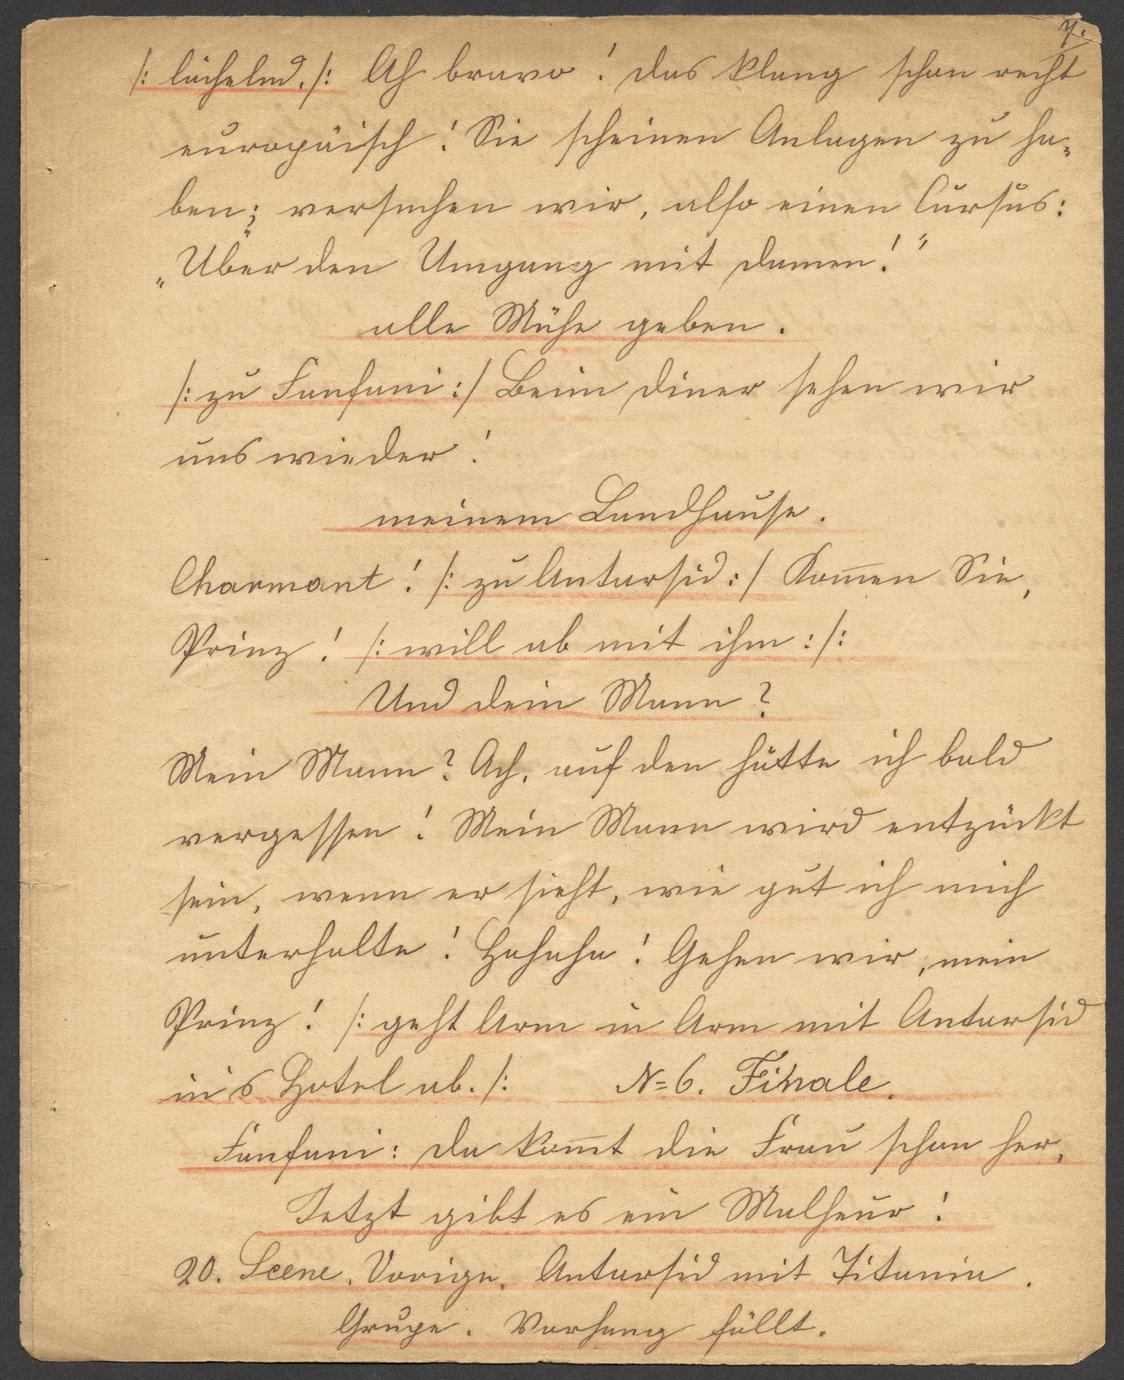 7.
/: lächelnd. /: Ah bravo! das klang schon recht
europäisch! Sie scheinen Anlagen zu ha-
ben; versuchen wir, also einen Cursus:
„Über den Umgang mit damen!"
alle Mühe geben.
/: zu Fanfani :/ Beim diner sehen wir
uns wieder!
meinem Landhause.
Charmant! /: zu Antarsid :/ Kom̅en Sie,
Prinz! /: will ab mit ihm :/:
Und dein Mann?
Mein Mann? Ach, auf den hätte ich bald
vergessen! Mein Mann wird entzückt
sein, wenn er sieht, wie gut ich mich
unterhalte! Hahaha! Gehen wir, mein
Prinz! /: geht Arm in Arm mit Antarsid
in's Hotel ab. /: N=6. Finale.
Fanfani: da kom̅t die Frau schon her,
Jetzt gibt es ein Malheur!
20. Scene. Vorige. Antarsid mit Titania.
Grupe. Vorhang fällt.